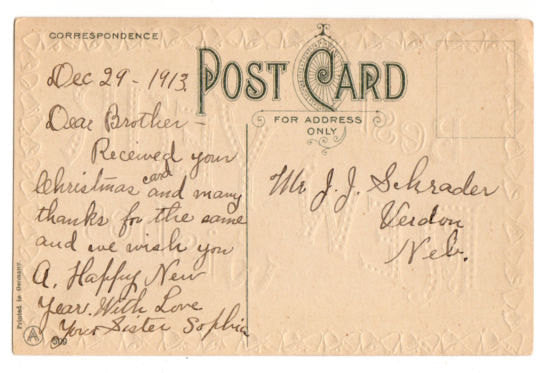 CORRESPONDENCE
POST CARD
FOR ADDRESS
ONLY
Dec 29 - 1913.
Dear Brother -
Received your
Christmas card and many
thanks for the same
and we wish you
A. Happy New
Year. With Love
Your Sister Sophia
Mr. J. J. Schrader
Verdon
Neb.
Printed in Germany.
A